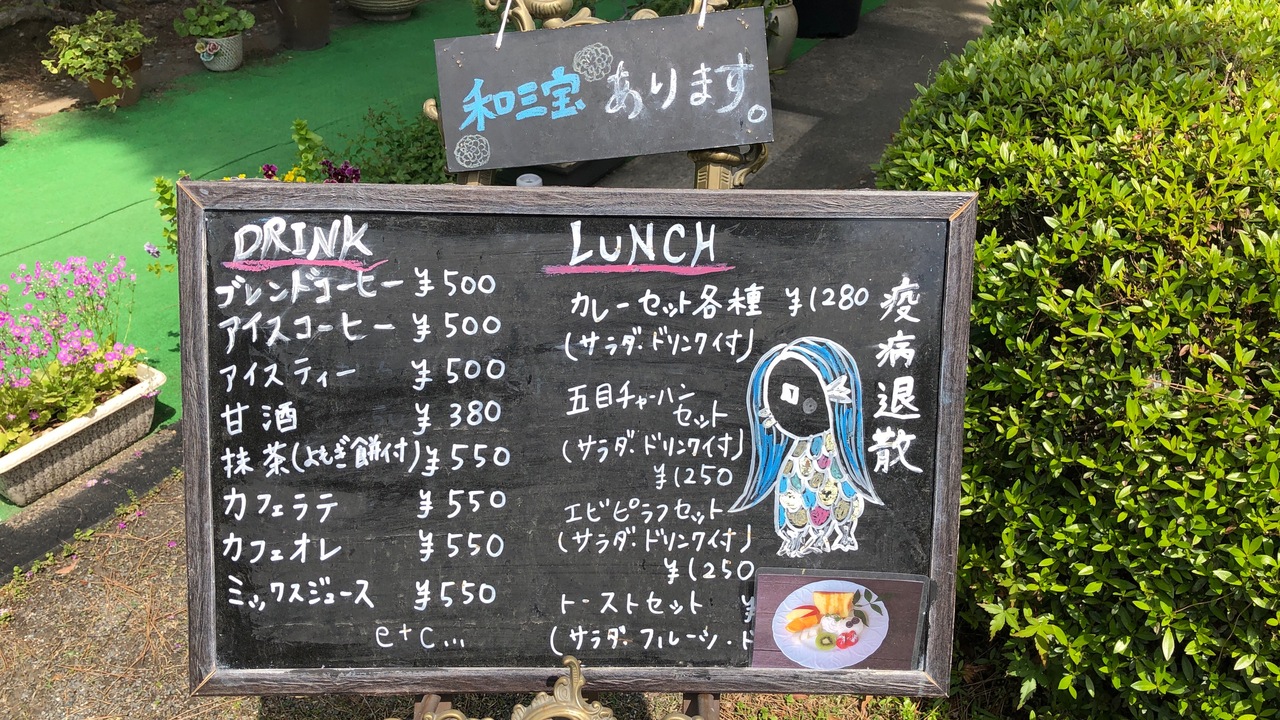 和三宝 あります。
DRINK
ブレンドコーヒー ¥500
アイスコーヒー ¥500
アイスティー ¥500
甘酒 ¥380
抹茶(よもぎ餅付) ¥550
カフェラテ ¥550
カフェオレ ¥550
ミックスジュース ¥550
etc...
LUNCH
カレーセット各種 ¥1280
(サラダ・ドリンク付)
五目チャーハン
セット
(サラダ・ドリンク付)
¥1250
エビピラフセット
(サラダ・ドリンク付)
¥1250
トーストセット ¥
(サラダ・フルーツ・ド
疫病退散